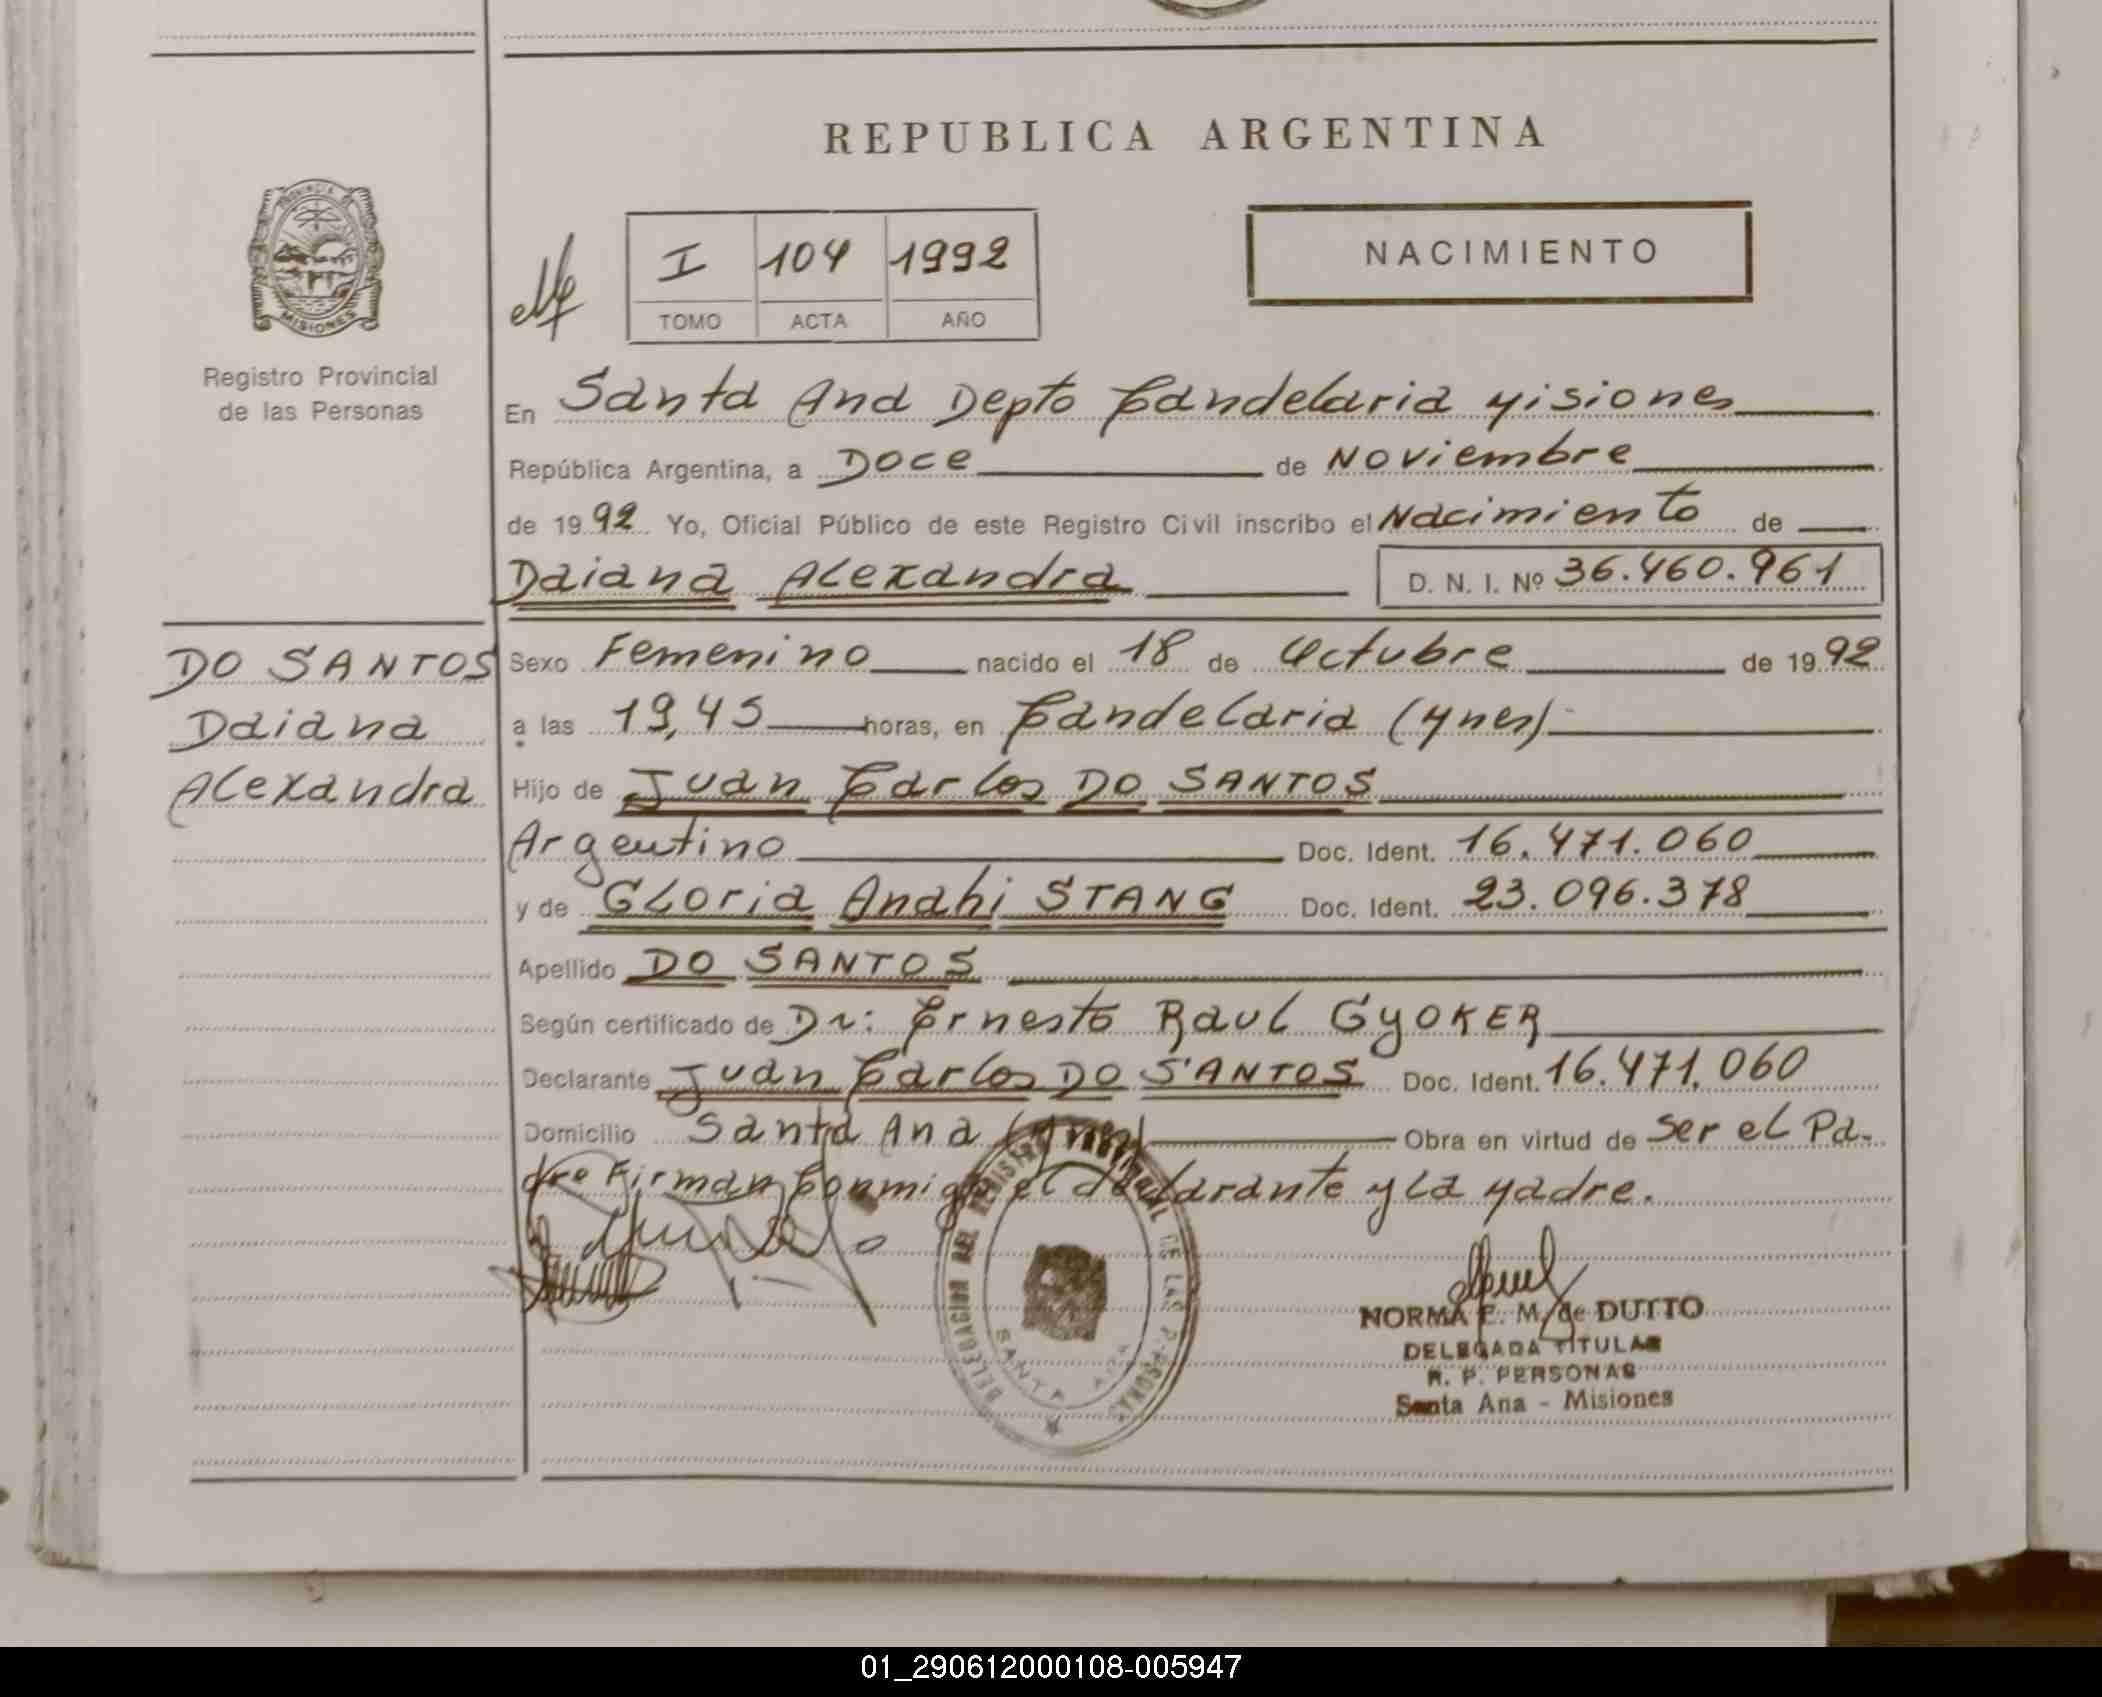 REPUBLICA ARGENTINA
PROVINCIA
MISIONES
Registro Provincial
de las Personas
I 104 1992
TOMO ACTA AÑO
NACIMIENTO
En Santa Ana Depto Candelaria Misiones
República Argentina, a Doce de Noviembre
de 1992 Yo, Oficial Público de este Registro Civil inscribo el Nacimiento de
Daiana Alexandra D. N. I. Nº 36.460.961
DO SANTOS
Daiana
Alexandra
Sexo Femenino nacido el 18 de Octubre de 1992
a las 19,45 horas, en Candelaria (Mnes)
Hijo de Juan Carlos DO SANTOS
Argentino Doc. Ident. 16.471.060
y de Gloria Anahi STANG Doc. Ident. 23.096.378
Apellido DO SANTOS
Según certificado de Dr: Ernesto Raul GYOKER
Declarante Juan Carlos DO SANTOS Doc. Ident. 16.471.060
Domicilio Santa Ana (Mnes) Obra en virtud de ser el Pa-
dre Firman Conmigo el declarante y la Madre.
DELEGACION DEL REGISTRO PROVINCIAL DE LAS PERSONAS
SANTA ANA
NORMA E. M. de DUTTO
DELEGADA TITULAR
R. P. PERSONAS
Santa Ana - Misiones
01_290612000108-005947